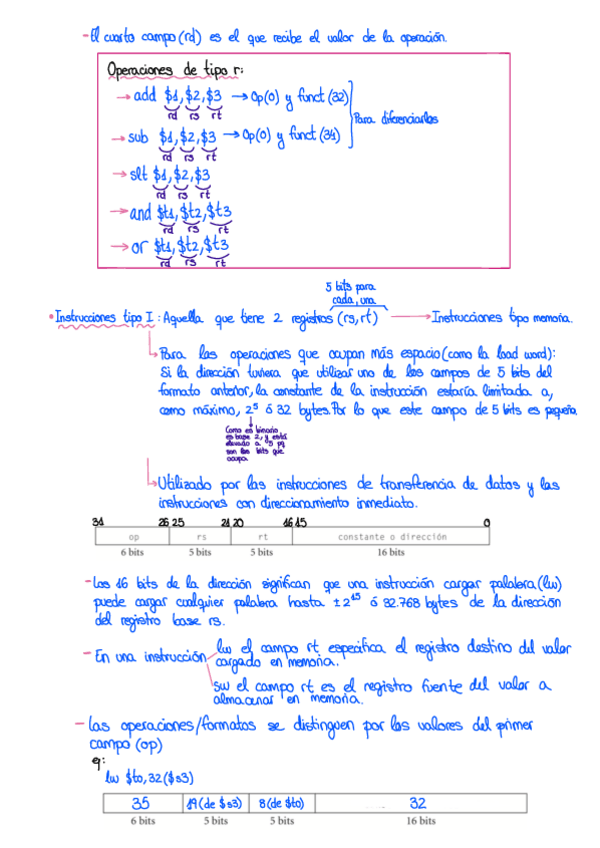 - El cuarto campo (rd) es el que recibe el valor de la operación.
Operaciones de tipo r:
→ add $1, $2, $3 → Op(0) y funct (32)
rd rs rt
Para diferenciarlas
→ sub $1, $2, $3 → Op(0) y funct (34)
rd rs rt
→ slt $1, $2, $3
rd rs rt
→ and $t1, $t2, $t3
rd rs rt
→ or $t1, $t2, $t3
rd rs rt
5 bits para
cada una
• Instrucciones tipo I: Aquella que tiene 2 registros (rs, rt) → Instrucciones tipo memoria.
↳ Para las operaciones que ocupan más espacio (como la load word):
Si la dirección tuviera que utilizar uno de los campos de 5 bits del
formato anterior, la constante de la instrucción estaría limitada a,
como máximo, 2⁵ ó 32 bytes. Por lo que este campo de 5 bits es pequeño.
Como es binario
es base 2, y está
elevado a 5 pq
son los bits que
ocupa
↳ Utilizado por las instrucciones de transferencia de datos y las
instrucciones con direccionamiento inmediato.
31 26 25 21 20 16 15 0
op rs rt constante o dirección
6 bits 5 bits 5 bits 16 bits
- Los 16 bits de la dirección significan que una instrucción cargar palabra (lw)
puede cargar cualquier palabra hasta ± 2¹⁵ ó 32.768 bytes de la dirección
del registro base rs.
- En una instrucción
lw el campo rt especifica el registro destino del valor
cargado en memoria.
sw el campo rt es el registro fuente del valor a
almacenar en memoria.
- Las operaciones/formatos se distinguen por los valores del primer
campo (op)
ej:
lw $t0, 32($s3)
35 19 (de $s3) 8 (de $t0) 32
6 bits 5 bits 5 bits 16 bits